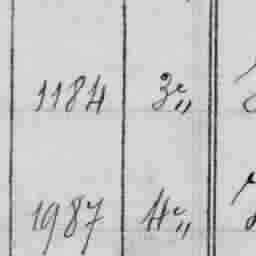 1184 3e „
1987 4e „